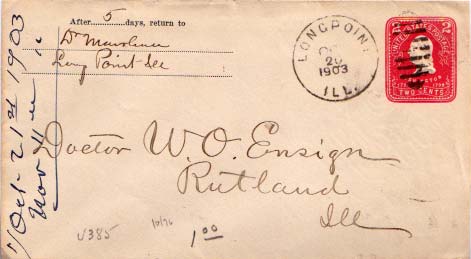 After 5 days, return to
Dr
Long Point Ill
LONG POINT
OCT
20
1903
ILL.
UNITED STATES POSTAGE
2
2
TWO CENTS
Doctor W. O. Ensign
Rutland
Ill
Oct 21st 1903
Nov 11
U385
10/76
1.00